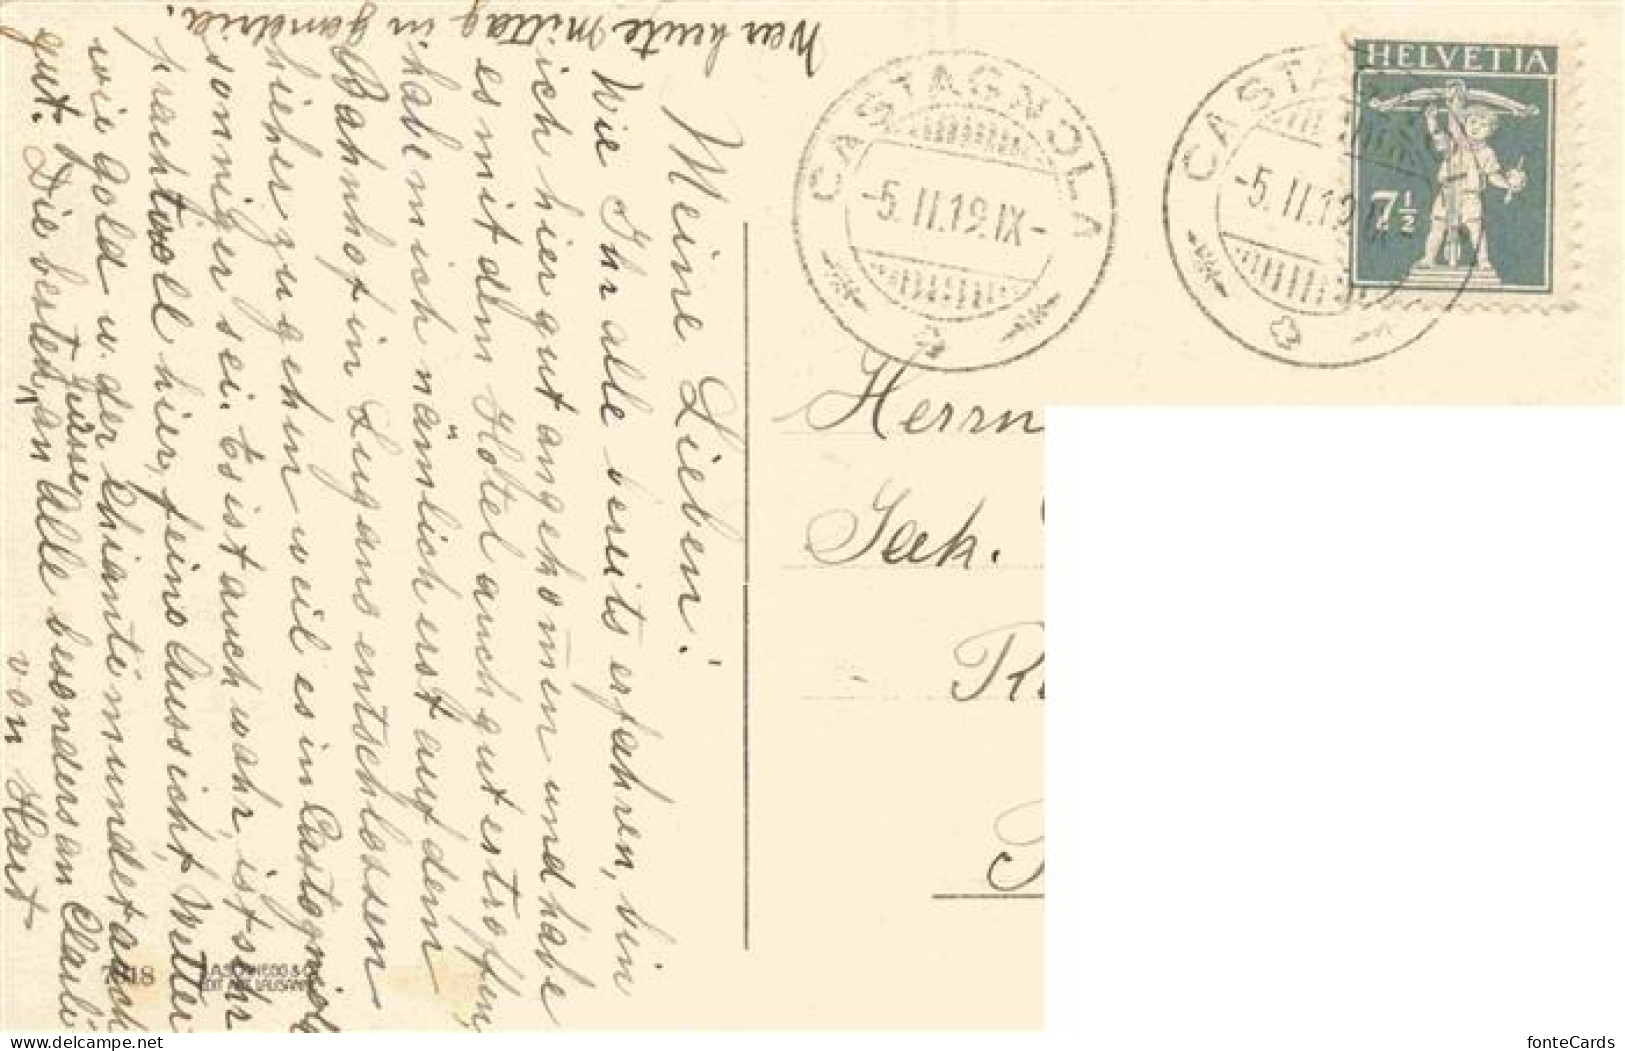 Meine Lieben!
Wie Ihr alle bereits erfahren, bin
ich hier gut angekommen und habe
es mit dem Hôtel auch gut getroffen,
habe mich nämlich erst auf dem
Bahnhof in Lugano entschlossen
hieher zu gehen weil es in Castagnola
sonniger sei. Es ist auch wahr, ist sehr
prachtvoll hier, feine Aussicht, Wetter
wie Gold u. der Chianti mundet auch
gut. Die besten Grüsse an Alle besonders an Clärli
von Hart
War heute Mittag in Gandria.
CASTAGNOLA
-5.II.19.IX-
CASTA
-5.II.19
HELVETIA
7½
Herrn
Jak.
18
EDIT ART LAUSANNE
fonteCards
www.delcampe.net